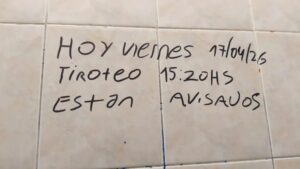 HOY viernes 17/04/26
TiroTeo 15:20HS
ESTán AViSADOS